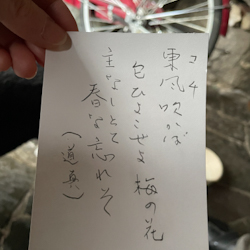 コチ
東風吹かば
匂ひおこせよ 梅の花
主なしとて
春な忘れそ
(道真)